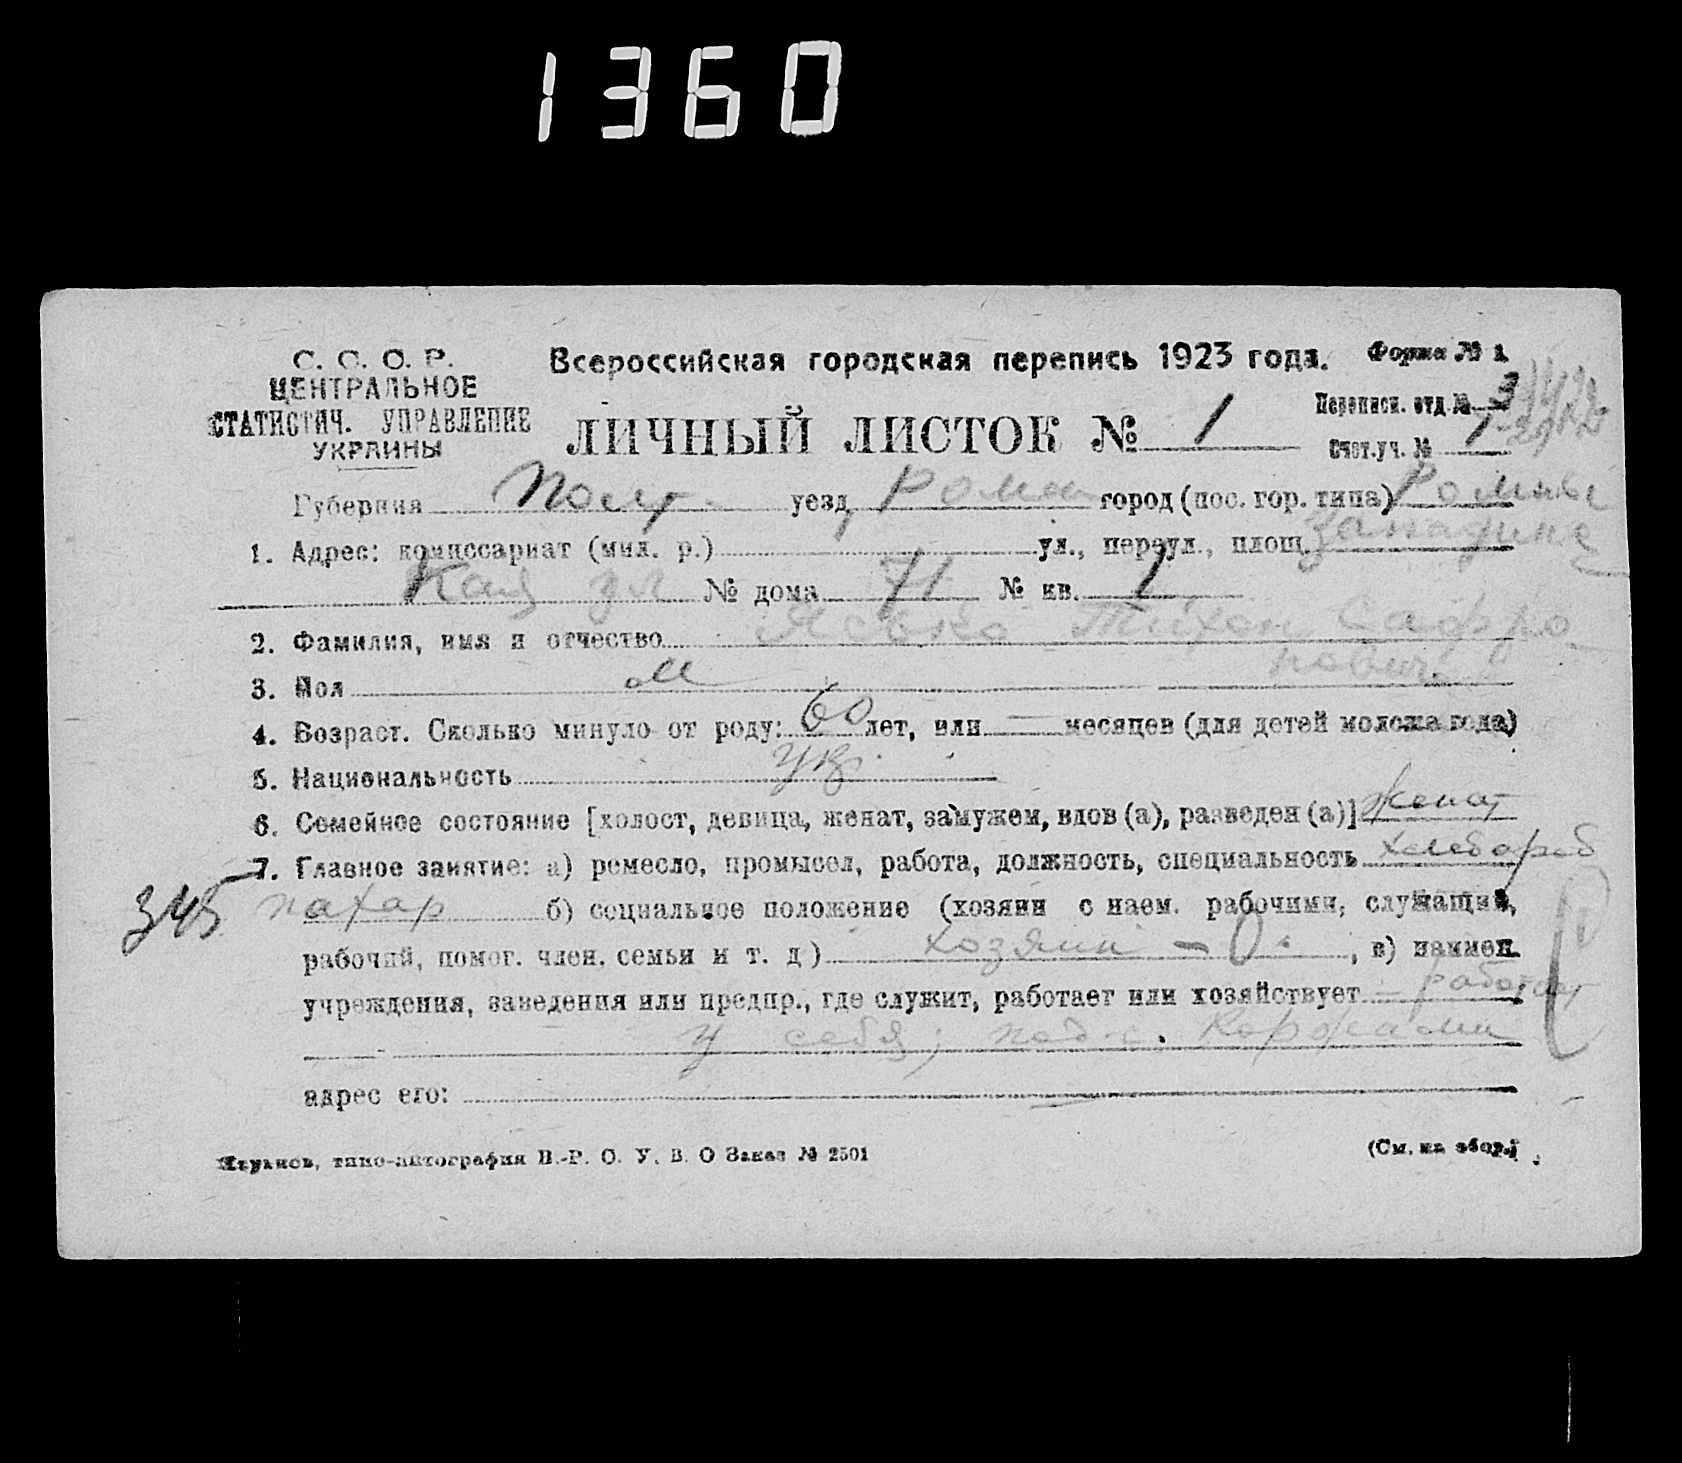 1360
С. С. О. Р.
ЦЕНТРАЛЬНОЕ
СТАТИСТИЧ. УПРАВЛЕНИЕ
УКРАИНЫ
Всероссийская городская перепись 1923 года. Форма № 1.
Переписн. отд. № 3
ЛИЧНЫЙ ЛИСТОК № 1
Счет. уч. № 1
Губерния Полт. уезд Ромен город (пос. гор. типа) Ромны
1. Адрес: комиссариат (мил. р.) ул., переул., площ.
кая ул № дома 71 № кв. 1
2. Фамилия, имя и отчество Ясько Тихон Сафро
нович.
3. Пол м
4. Возраст. Сколько минуло от роду: 60 лет, или — месяцев (для детей моложе года)
5. Национальность укр.
6. Семейное состояние [холост, девица, женат, замужем, вдов (а), разведен (а)] женат
7. Главное занятие: а) ремесло, промысел, работа, должность, специальность хлебороб
345 пахар б) социальное положение (хозяин с наем. рабочими, служащий,
рабочий, помог. член. семьи и т. д) хозяин - 0. , в) наимен.
учреждения, заведения или предпр., где служит, работает или хозяйствует работает
у себя; под с. Коржами
адрес его: —
Харьков, типо-литография В.-Р. О. У. В. О Заказ № 2501
(См. на обор.)